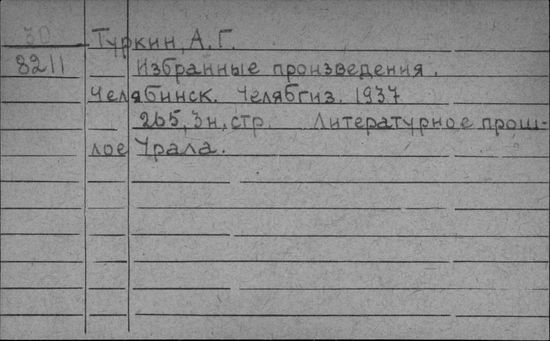 30
Туркин, А. Г.
8211
Избранные произведения.
Челябинск. Челябгиз. 1937
265, 3н. стр. Литературное прош-
лое Урала.